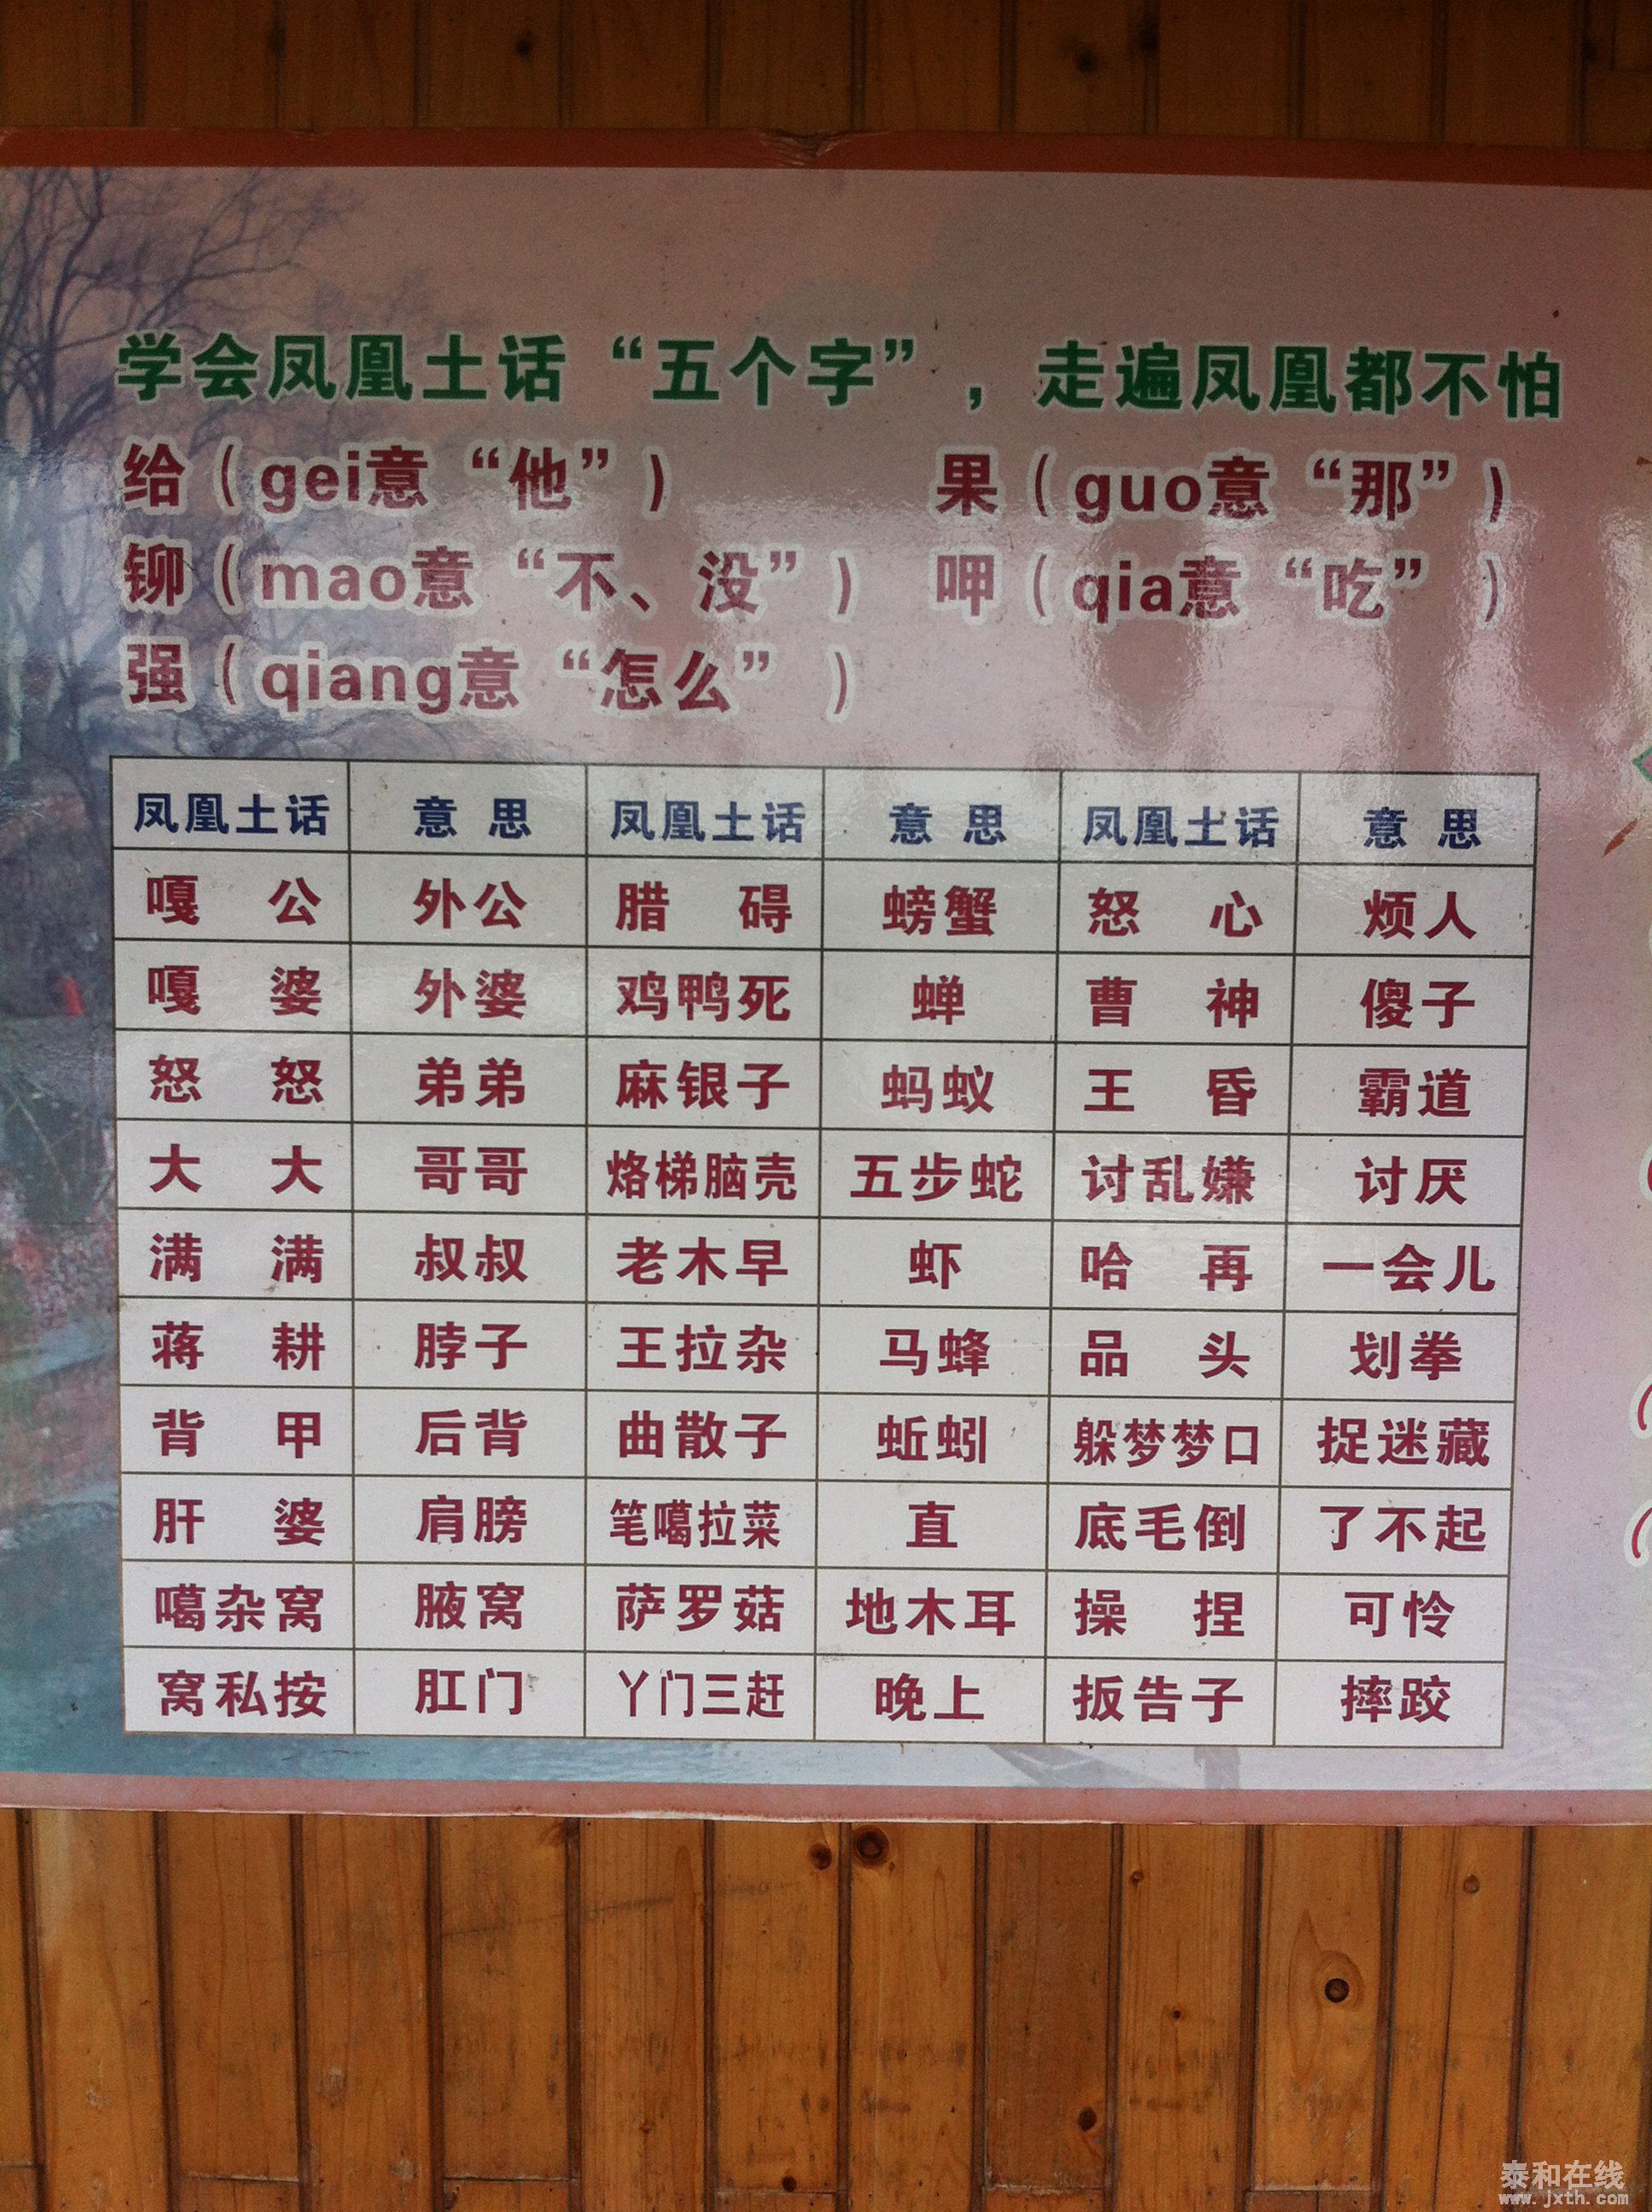 学会凤凰土话“五个字”，走遍凤凰都不怕
给（gei意“他”） 果（guo意“那”）
铆（mao意“不、没”） 呷（qia意“吃”）
强（qiang意“怎么”）
凤凰土话 意思 凤凰土话 意思 凤凰土话 意思
嘎公 外公 腊碍 螃蟹 怒心 烦人
嘎婆 外婆 鸡鸭死 蝉 曹神 傻子
怒怒 弟弟 麻银子 蚂蚁 王昏 霸道
大大 哥哥 烙梯脑壳 五步蛇 讨乱嫌 讨厌
满满 叔叔 老木早 虾 哈再 一会儿
蒋耕 脖子 王拉杂 马蜂 品头 划拳
背甲 后背 曲散子 蚯蚓 躲梦梦口 捉迷藏
肝婆 肩膀 笔噶拉菜 直 底毛倒 了不起
噶杂窝 腋窝 萨罗菇 地木耳 操捏 可怜
窝私按 肛门 丫门三赶 晚上 扳告子 摔跤
泰和在线
www.jxth.com